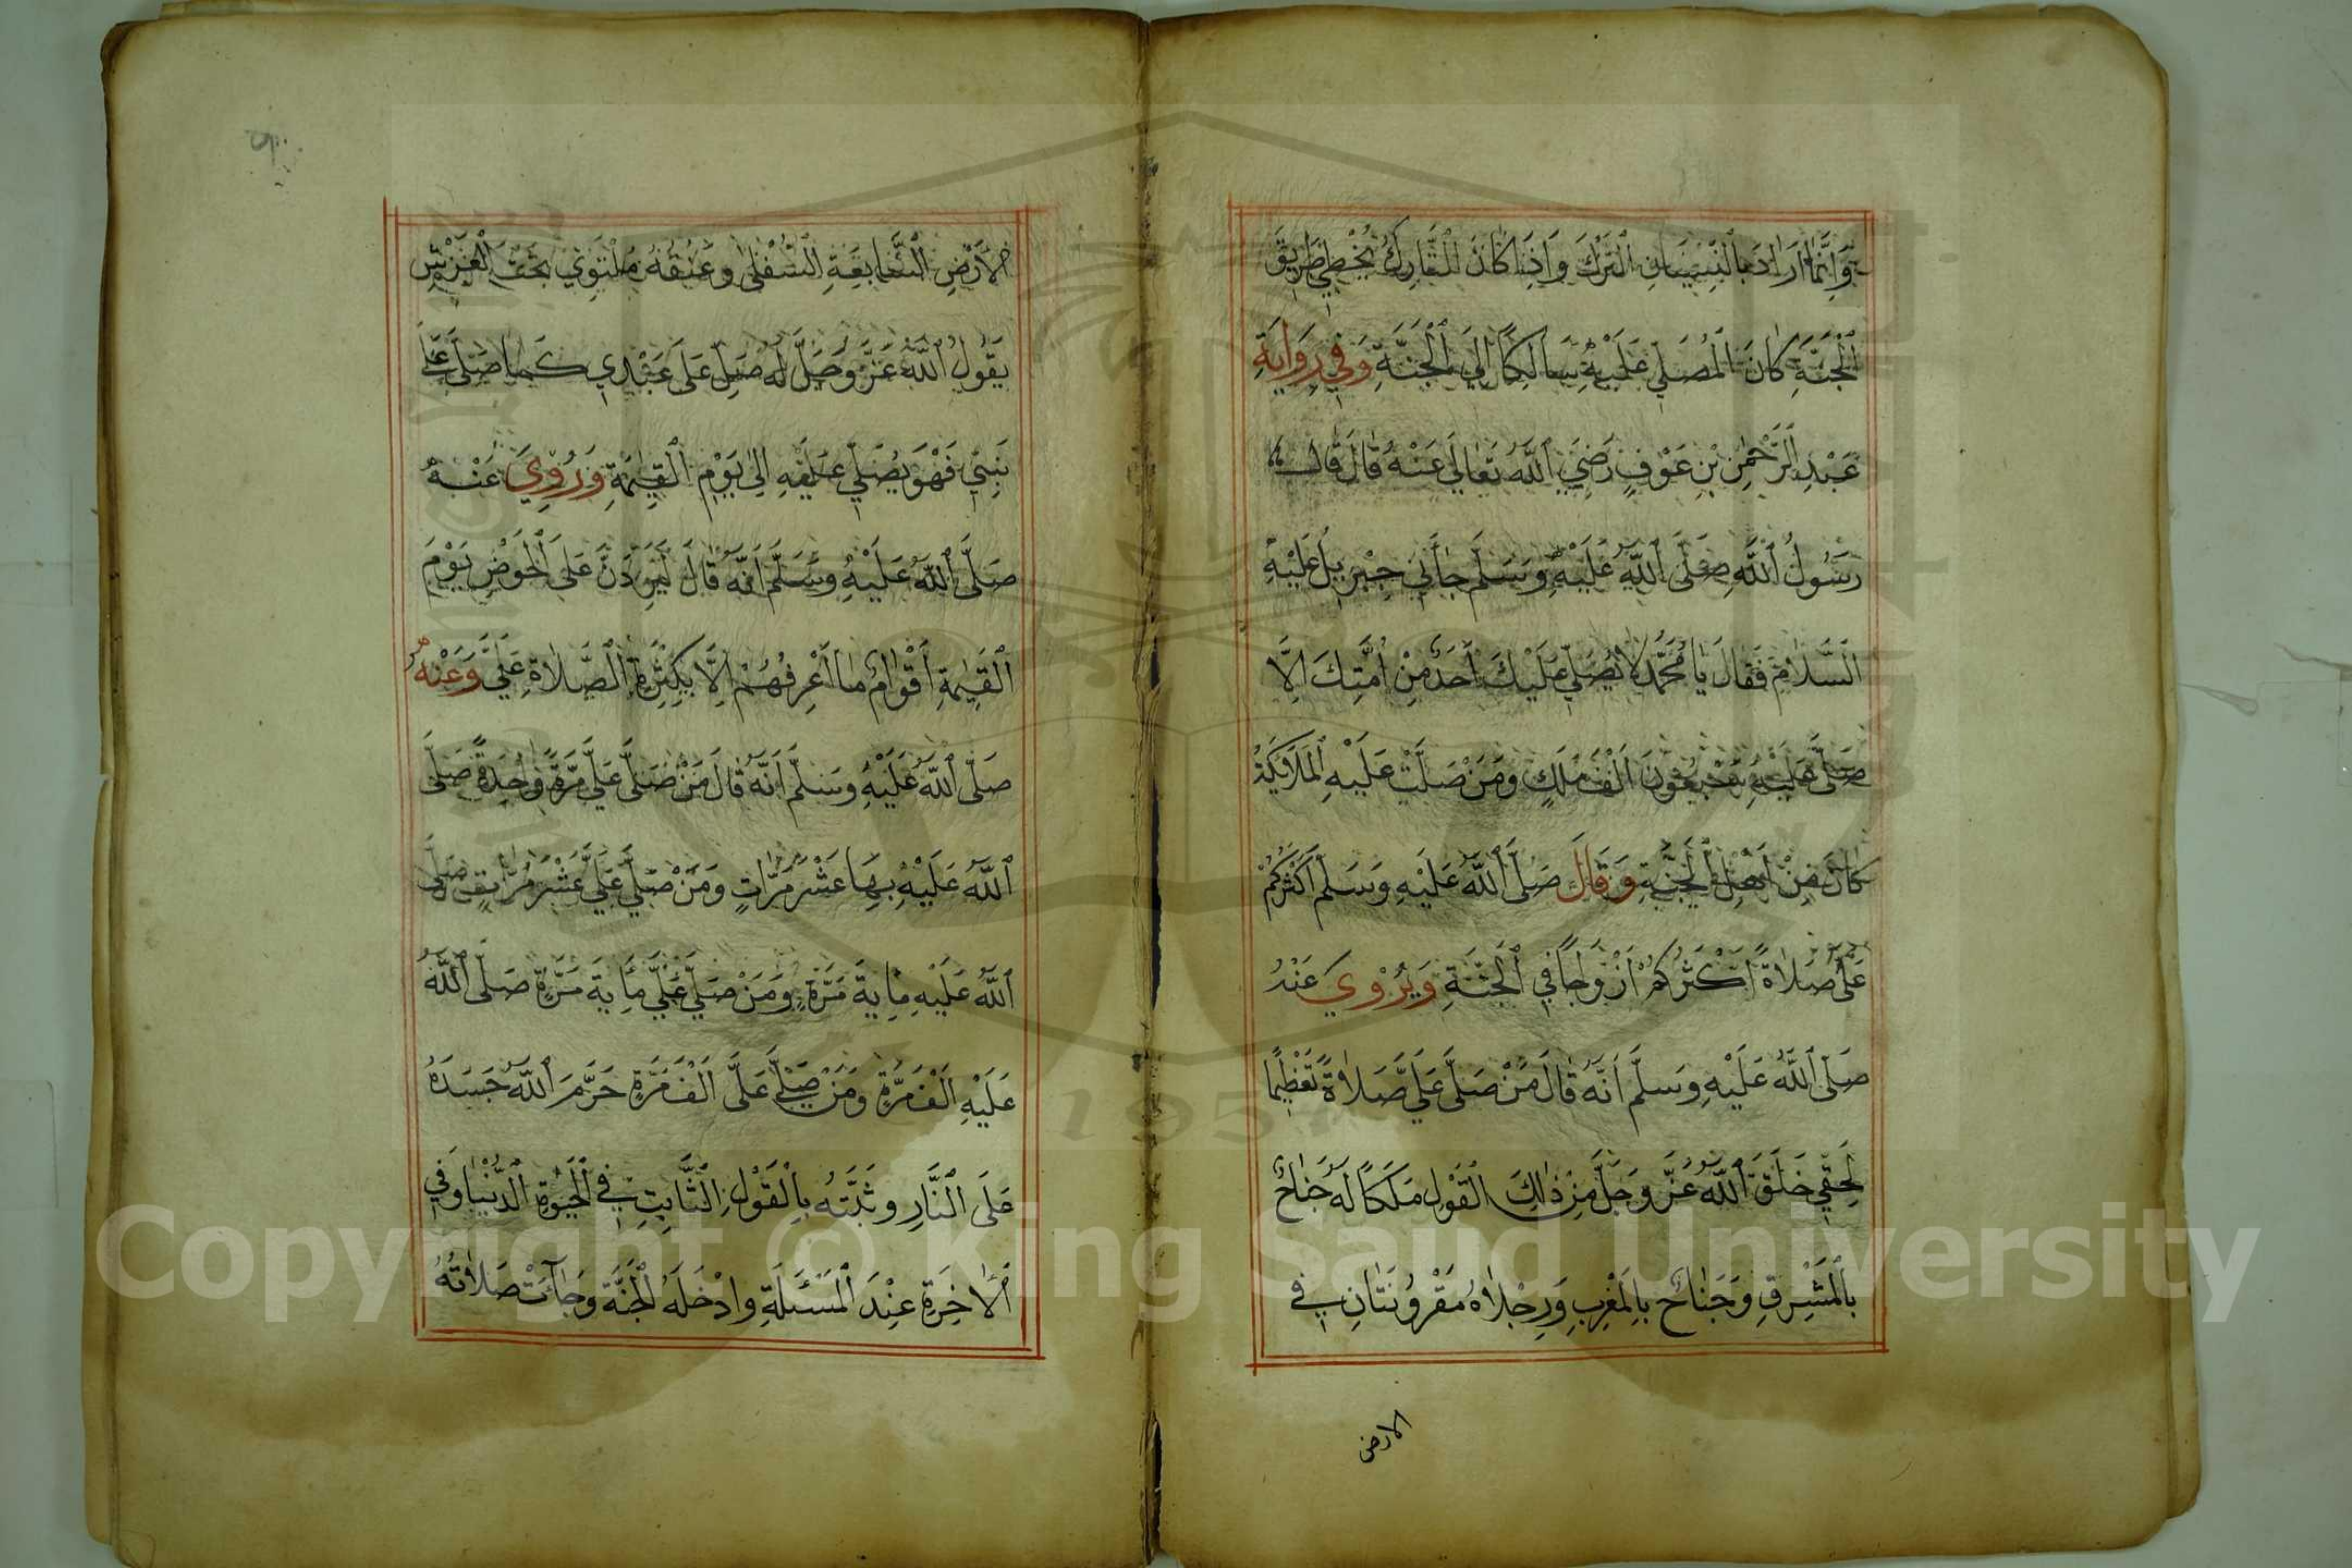 وَاِنَّمَا اَرَادَ بِالنِّسْيَانِ التَّرْكَ وَاِذَا كَانَ التَّارِكُ يُخْطِي طَرِيقَ
الْجَنَّةِ كَانَ الْمُصَلِّي عَلَيْهِ سَالِكًا اِلَي الْجَنَّةِ وَفِي رِوَايَةِ
عَبْدِ الرَّحْمٰنِ بْنِ عَوْفٍ رَضِيَ اللّٰهُ تَعَالَي عَنْهُ قَالَ قَالَ
رَسُولُ اللّٰهِ صَلَّى اللّٰهُ عَلَيْهِ وَسَلَّمَ جَاَنِي جِبْرِيلُ عَلَيْهِ
السَّلَامُ فَقَالَ يَا مُحَمَّدُ لَا يُصَلِّي عَلَيْكَ اَحَدٌ مِنْ اُمَّتِكَ اِلَّا
صَلَّى عَلَيْهِ سَبْعُونَ اَلْفَ مَلَكٍ وَمَنْ صَلَّتْ عَلَيْهِ الْمَلَائِكَةُ
كَانَ مِنْ اَهْلِ الْجَنَّةِ وَقَالَ صَلَّى اللّٰهُ عَلَيْهِ وَسَلَّمَ اَكْثَرُكُمْ
عَلَيَّ صَلَاةً اَكْثَرُكُمْ اَزْوَاجًا فِي الْجَنَّةِ وَيُرْوَي عَنْهُ
صَلَّى اللّٰهُ عَلَيْهِ وَسَلَّمَ اَنَّهُ قَالَ مَنْ صَلَّى عَلَيَّ صَلَاةً تَعْظِيمًا
لِحَقِّي خَلَقَ اللّٰهُ عَزَّ وَجَلَّ مِنْ ذٰلِكَ الْقَوْلِ مَلَكًا لَهُ جَنَاحٌ
بِالْمَشْرِقِ وَجَنَاحٌ بِالْمَغْرِبِ وَرِجْلَاهُ مَقْرُونَتَانِ فِي
الارض
الْاَرْضِ السَّابِعَةِ السُّفْلَى وَعُنُقُهُ مُلْتَوِي تَحْتَ الْعَرْشِ
يَقُولُ اللّٰهُ عَزَّ وَجَلَّ لَهُ صَلِّ عَلَى عَبْدِي كَمَا صَلَّى عَلَى
نَبِيِّ فَهْوَ يُصَلِّي عَلَيْهِ اِلَى يَوْمِ الْقِيٰمَةِ وَرُوِيَ عَنْهُ
صَلَّى اللّٰهُ عَلَيْهِ وَسَلَّمَ اَنَّهُ قَالَ لَيَرِدَنَّ عَلَى الْحَوْضِ يَوْمَ
الْقِيٰمَةِ اَقْوَامٌ مَا اَعْرِفُهُمْ اِلَّا بِكَثْرَةِ الصَّلَاةِ عَلَيَّ وَعَنْهُ
صَلَّى اللّٰهُ عَلَيْهِ وَسَلَّمَ اَنَّهُ قَالَ مَنْ صَلَّى عَلَيَّ مَرَّةً وَاحِدَةً صَلَّى
اللّٰهُ عَلَيْهِ بِهَا عَشْرَ مَرَّاتٍ وَمَنْ صَلَّي عَلَيَّ عَشْرَ مَرَّاتٍ صَلَّى
اللّٰهُ عَلَيْهِ مِايَةَ مَرَّةٍ وَمَنْ صَلَّي عَلَيَّ مِايَةَ مَرَّةٍ صَلَّى اللّٰهُ
عَلَيْهِ اَلْفَ مَرَّةٍ وَمَنْ صَلَّي عَلَيَّ اَلْفَ مَرَّةٍ حَرَّمَ اللّٰهُ جَسَدَهُ
عَلَى النَّارِ وَثَبَّتَهُ بِالْقَوْلِ الثَّابِتِ فِي الْحَيٰوةِ الدُّنْيَا وَفِي
الْاٰخِرَةِ عِنْدَ الْمَسْئَلَةِ وَادْخَلَهُ الْجَنَّةَ وَجَآءَتْ صَلَاتُهُ
Copyright © King Saud University
1957